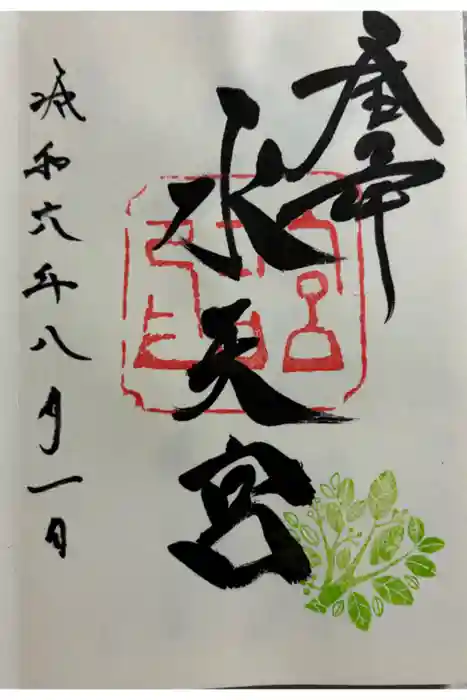 水天宮
令和六年八月一日